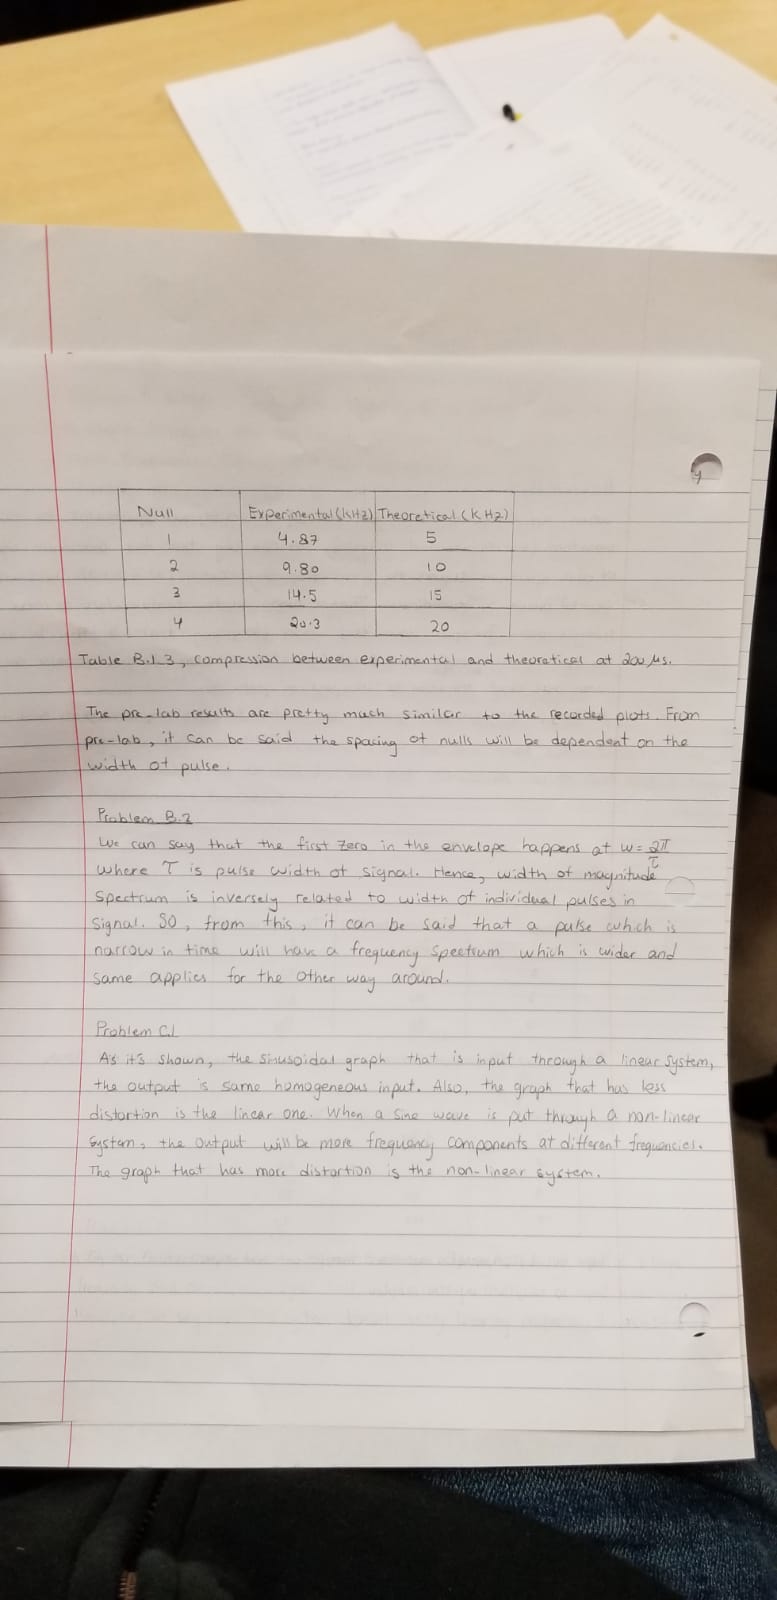 4
Null Experimental (kHz) Theoretical (KHz)
1 4.87 5
2 9.80 10
3 14.5 15
4 20.3 20
Table B.1.3, compression between experimental and theoretical at 200 μs.
The pre-lab results are pretty much similar to the recorded plots. From
pre-lab, it can be said the spacing of nulls will be dependent on the
width of pulse.
Problem B.2
We can say that the first zero in the envelope happens at w = 2π/τ
where τ is pulse width of signal. Hence, width of magnitude
spectrum is inversely related to width of individual pulses in
signal. So, from this, it can be said that a pulse which is
narrow in time will have a frequency spectrum which is wider and
same applies for the other way around.
Problem C.1
As it's shown, the sinusoidal graph that is input through a linear system,
the output is same homogeneous input. Also, the graph that has less
distortion is the linear one. When a sine wave is put through a non-linear
system, the output will be more frequency components at different frequencies.
The graph that has more distortion is the non-linear system.